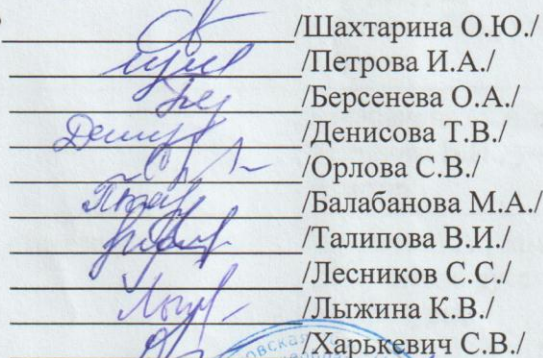 /Шахтарина О.Ю./
/Петрова И.А./
/Берсенева О.А./
/Денисова Т.В./
/Орлова С.В./
/Балабанова М.А./
/Талипова В.И./
/Лесников С.С./
/Лыжина К.В./
/Харькевич С.В./